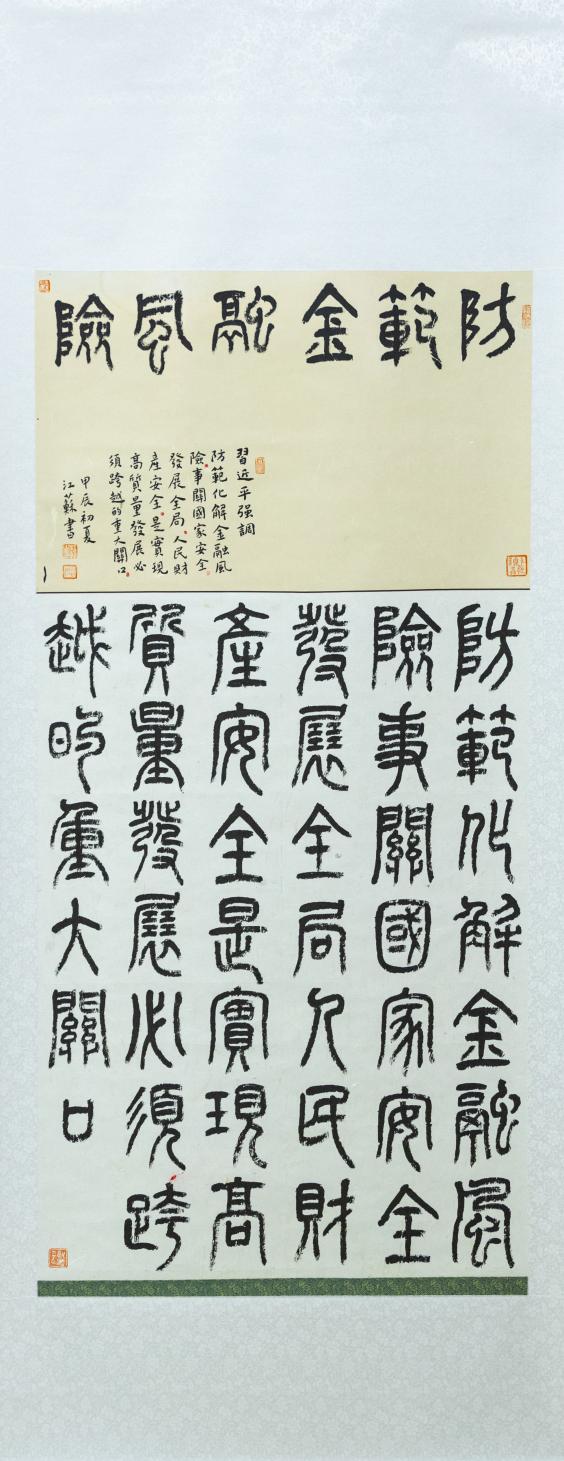 防範金融風險
習近平强調
防範化解金融風
險事關國家安全
發展全局人民財
產安全是實現
高質量發展必
須跨越的重大關口
甲辰初夏
江蘇書
防範化解金融風
險事關國家安全
發展全局人民財
產安全是實現高
質量發展必須跨
越的重大關口